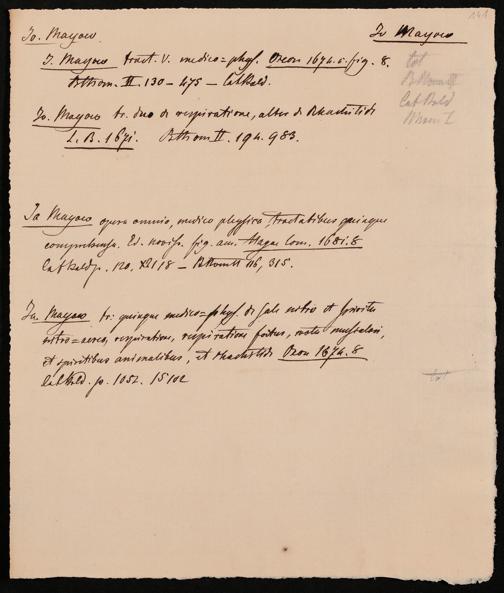 141
Jo. Mayow
Jo Mayow
J. Mayow tract. V. medico=phys. Oxon 1674. c. fig. 8.
Bthom. II. 130 – 475 – Cat Bald.
tot
Bthom II
Cat Bald
Jo. Mayow tr. duo de respiratione, alter de Rhachitide
L. B. 1671. Bthom II. 194. 983.
Jo Mayow opera omnia, medico physica, tractatibus quinque
comprehensa. Ed. noviss. fig. aen. Hagae Com. 1681. 8
Cat Bald p. 120. – Bthom II 116, 315.
Jo. Mayow tr. quinque medico=phys. de sale nitro et spiritu
nitro=aereo, respiratione, respiratione foetus, motu musculari,
et spiritibus animalibus, et rhachitide Oxon 1674. 8
tot
Cat Bald. p. 1052. 15102